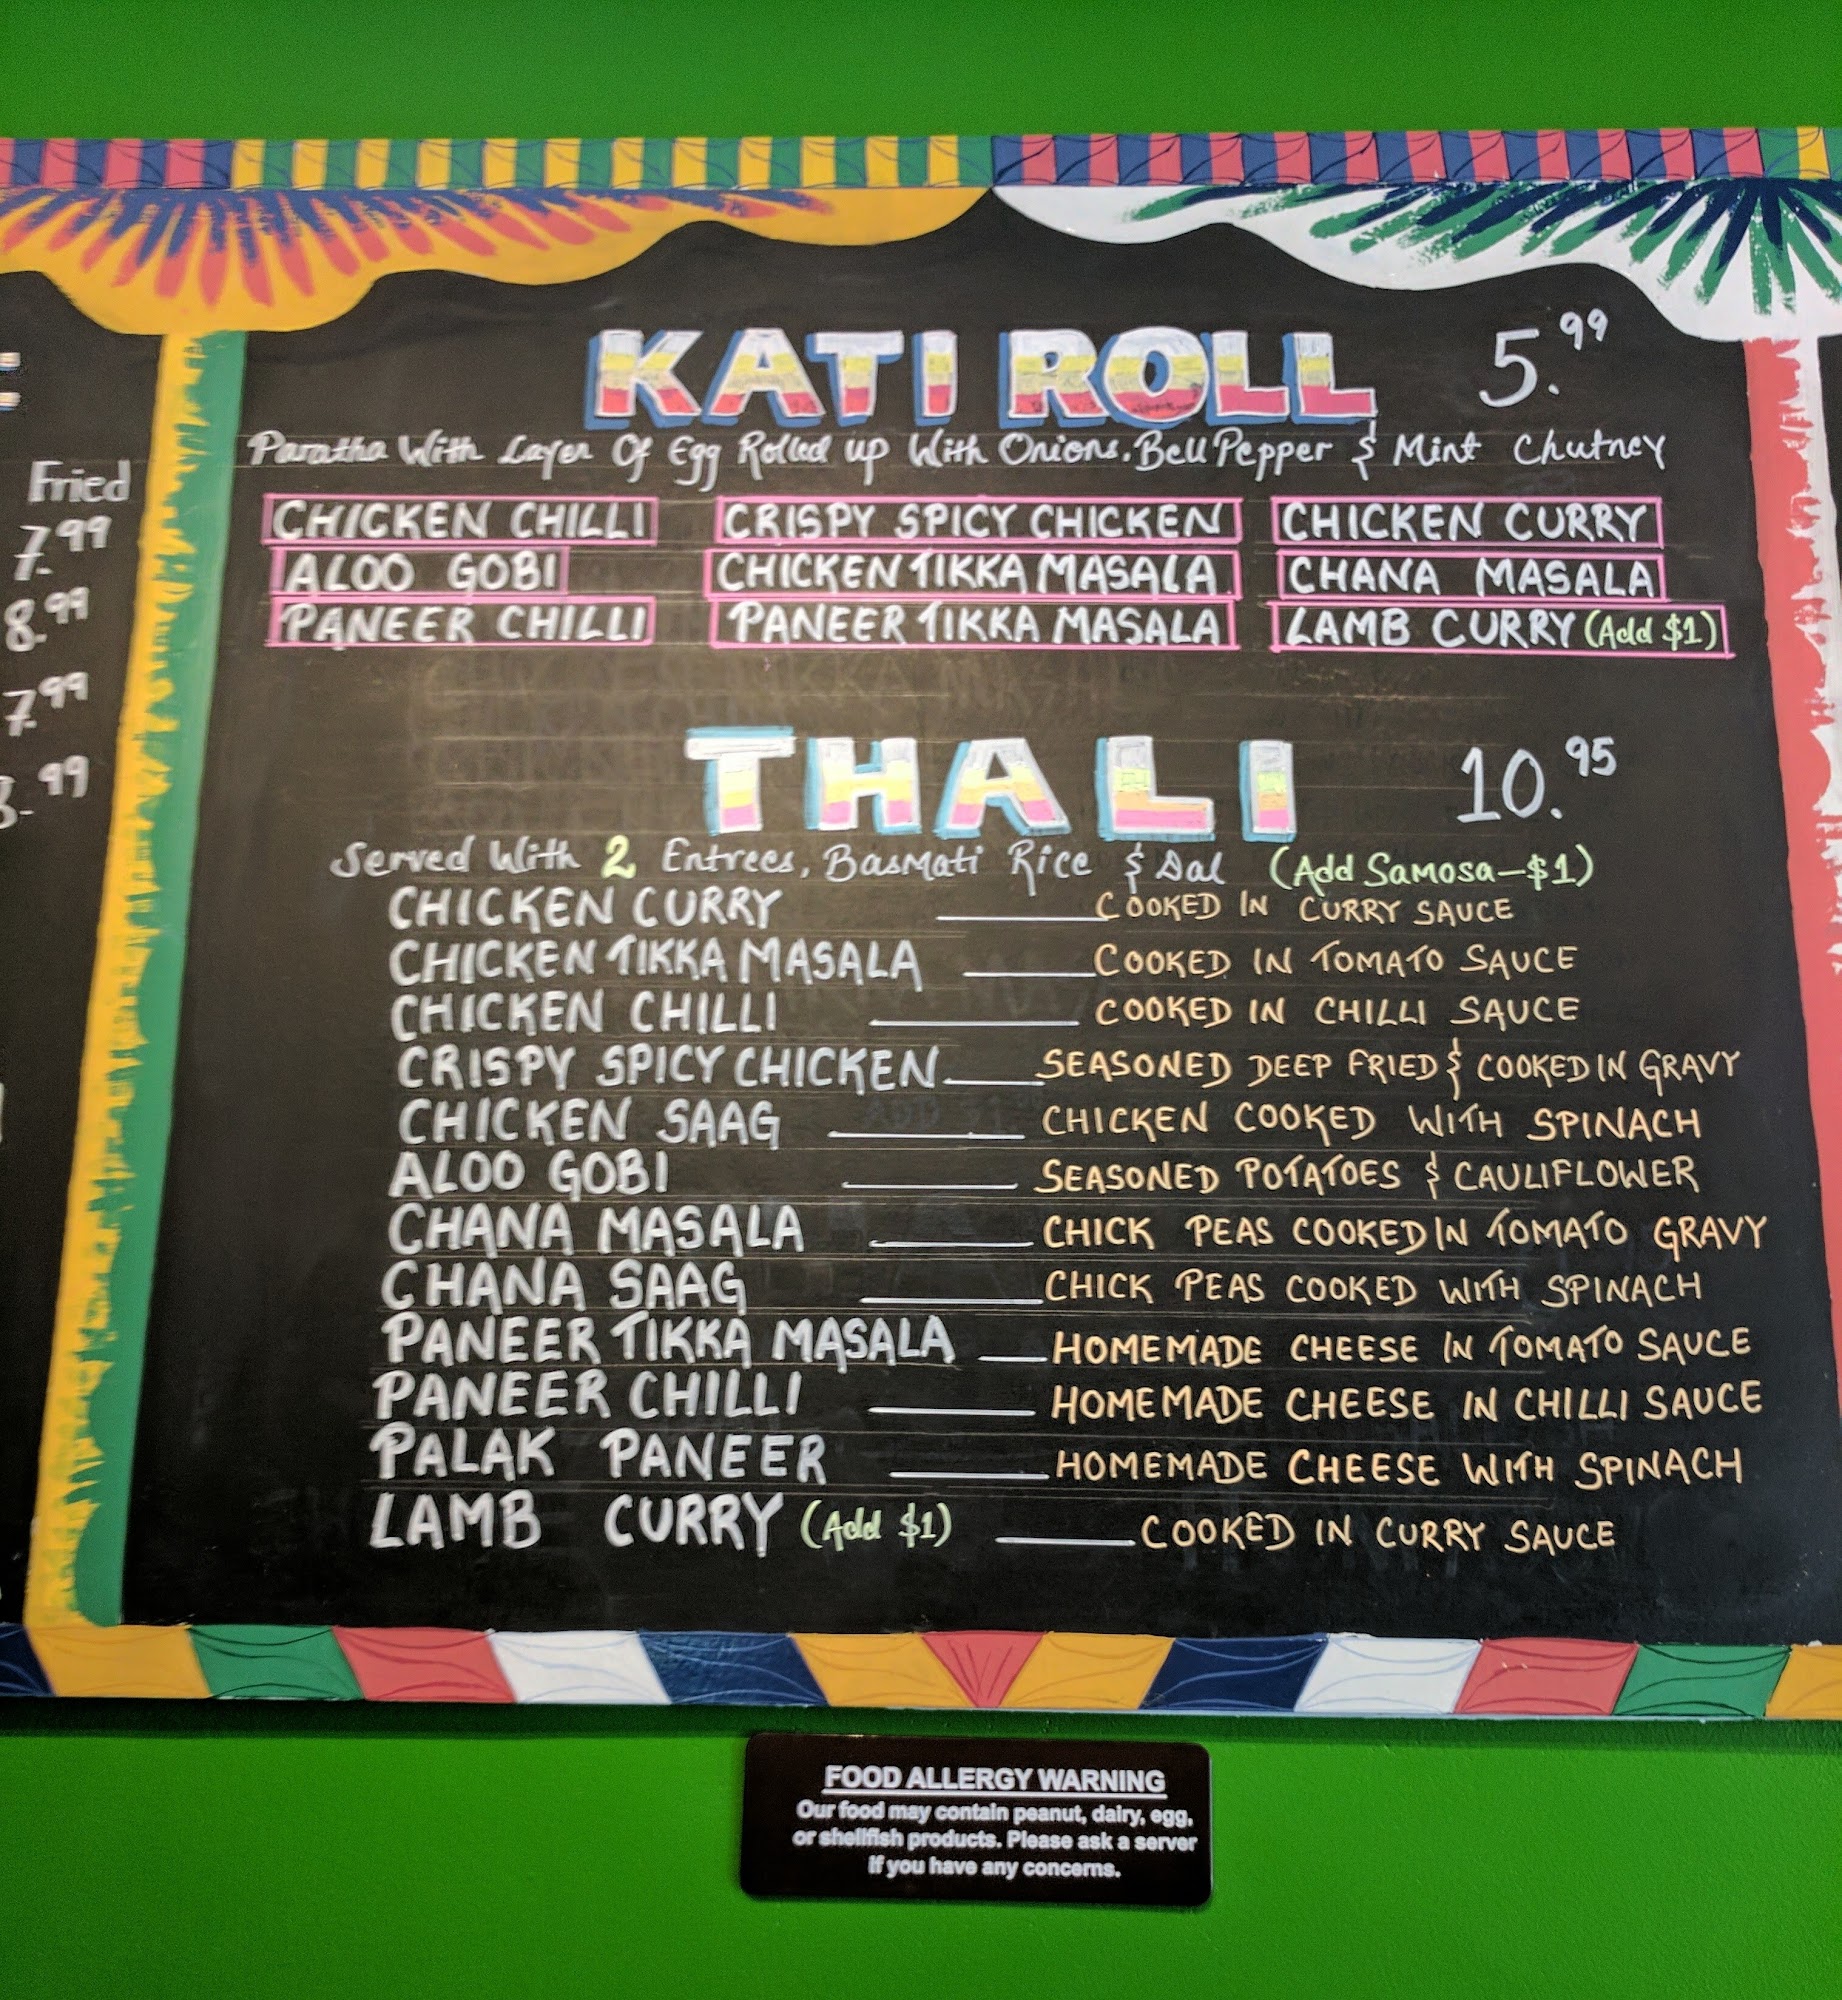 Fried
7.99
8.99
7.99
8.99
KATI ROLL 5.99
Paratha With Layer Of Egg Rolled up With Onions, Bell Pepper & Mint Chutney
CHICKEN CHILLI CRISPY SPICY CHICKEN CHICKEN CURRY
ALOO GOBI CHICKEN TIKKA MASALA CHANA MASALA
PANEER CHILLI PANEER TIKKA MASALA LAMB CURRY (Add $1)
THALI 10.95
Served With 2 Entrees, Basmati Rice & Dal (Add Samosa-$1)
CHICKEN CURRY COOKED IN CURRY SAUCE
CHICKEN TIKKA MASALA COOKED IN TOMATO SAUCE
CHICKEN CHILLI COOKED IN CHILLI SAUCE
CRISPY SPICY CHICKEN SEASONED DEEP FRIED & COOKED IN GRAVY
CHICKEN SAAG CHICKEN COOKED WITH SPINACH
ALOO GOBI SEASONED POTATOES & CAULIFLOWER
CHANA MASALA CHICK PEAS COOKED IN TOMATO GRAVY
CHANA SAAG CHICK PEAS COOKED WITH SPINACH
PANEER TIKKA MASALA HOMEMADE CHEESE IN TOMATO SAUCE
PANEER CHILLI HOMEMADE CHEESE IN CHILLI SAUCE
PALAK PANEER HOMEMADE CHEESE WITH SPINACH
LAMB CURRY (Add $1) COOKED IN CURRY SAUCE
FOOD ALLERGY WARNING
Our food may contain peanut, dairy, egg,
or shellfish products. Please ask a server
if you have any concerns.